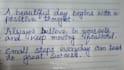 A beautiful day begins with a
positive thought.
Always believe in yourself
and keep moving forward.
Small steps everyday can lead
to great success.